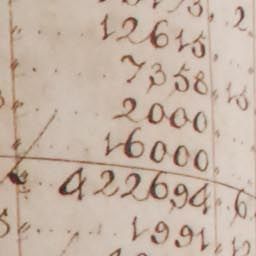 12615 .
7358 . 15
2000
16000
422694 . 6
1991 . 12